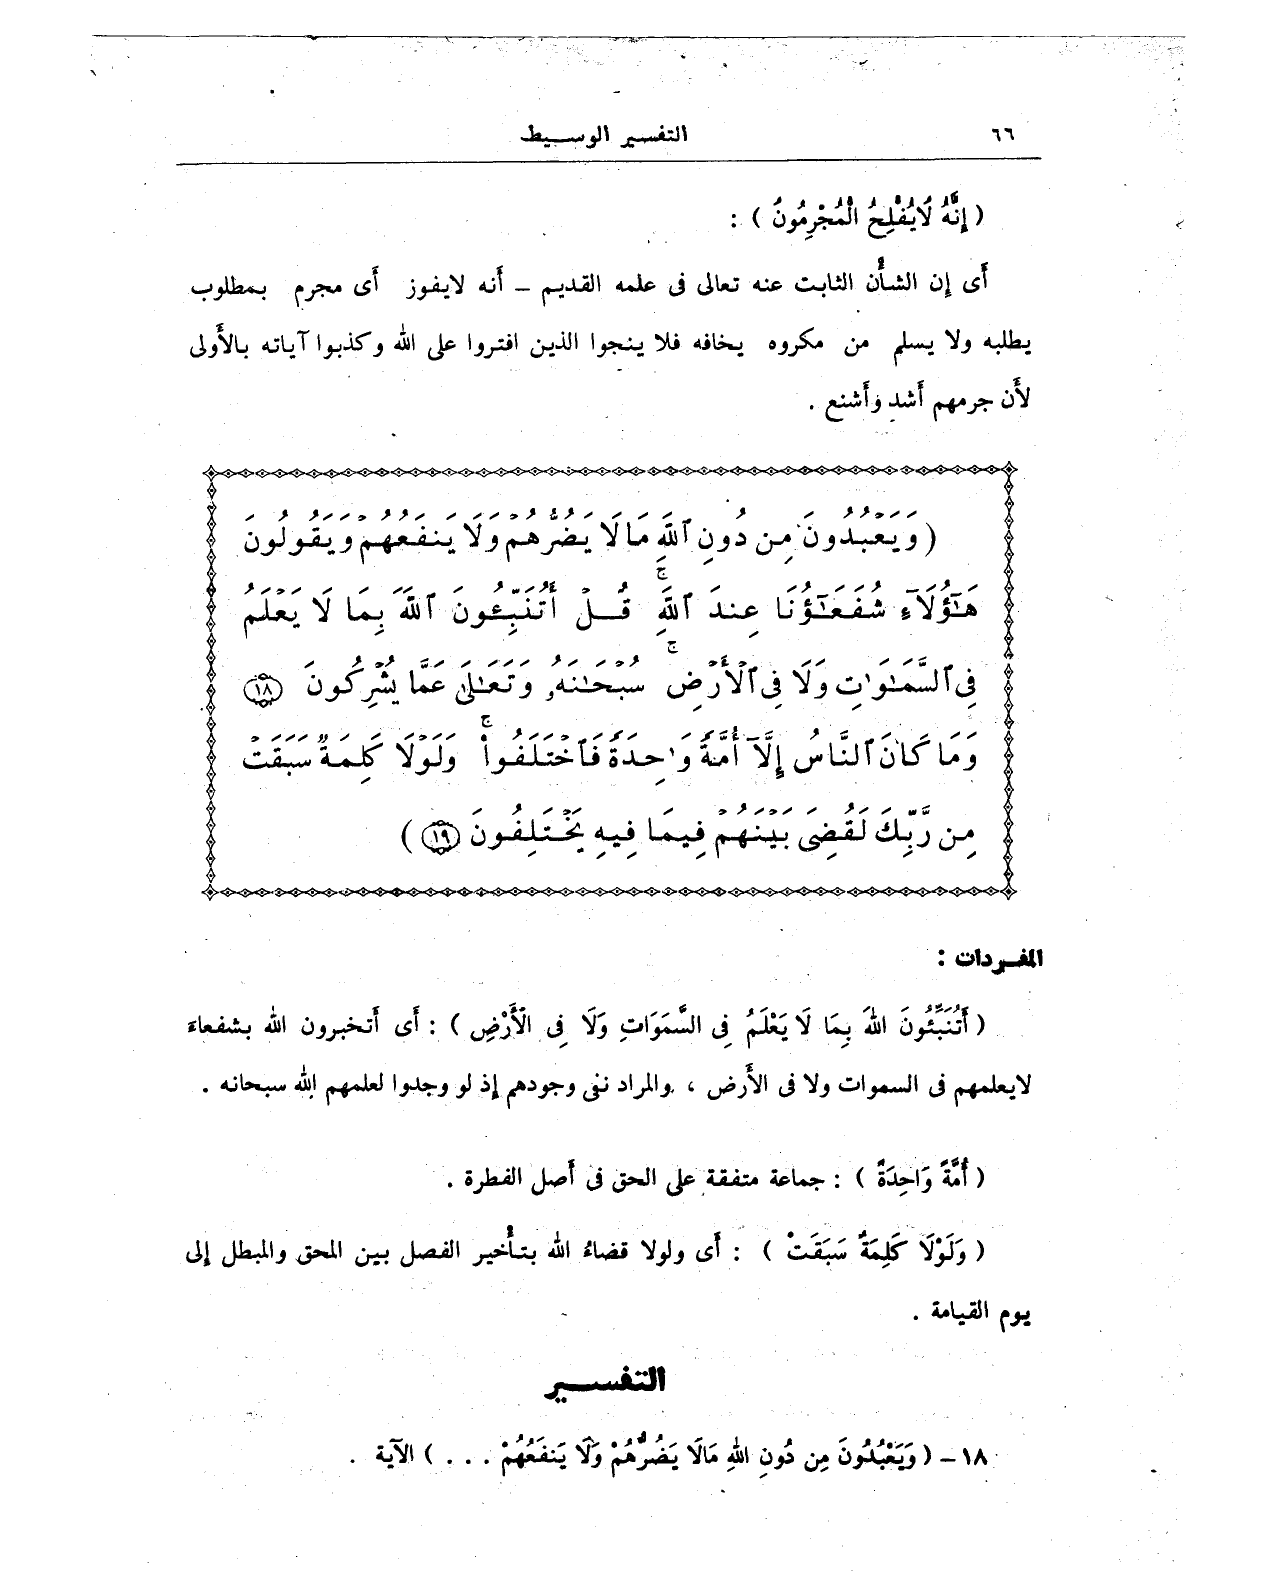 ٦٦ التفسير الوسيط
( إِنَّهُ لَايُفْلِحُ الْمُجْرِمُونَ ) :
أَى إن الشأْن الثابت عنه تعالى فى علمه القديم – أَنه لايفوز أَى مجرم بمطلوب
يطلبه ولا يسلم من مكروه يخافه فلا ينجوا الذين افتروا على الله وكذبوا آياته بالأَولى
لأَن جرمهم أَشد وأَشنع .
( وَيَعۡبُدُونَ مِن دُونِ ٱللَّهِ مَا لَا يَضُرُّهُمۡ وَلَا يَنفَعُهُمۡ وَيَقُولُونَ
هَـٰٓؤُلَآءِ شُفَعَـٰٓؤُنَا عِندَ ٱللَّهِۚ قُلۡ أَتُنَبِّـُٔونَ ٱللَّهَ بِمَا لَا يَعۡلَمُ
فِى ٱلسَّمَـٰوَٰتِ وَلَا فِى ٱلۡأَرۡضِۚ سُبۡحَـٰنَهُۥ وَتَعَـٰلَىٰ عَمَّا يُشۡرِكُونَ ١٨
وَمَا كَانَ ٱلنَّاسُ إِلَّآ أُمَّةً وَٰحِدَةً فَٱخۡتَلَفُوا۟ۚ وَلَوۡلَا كَلِمَةٌ سَبَقَتۡ
مِن رَّبِّكَ لَقُضِىَ بَيۡنَهُمۡ فِيمَا فِيهِ يَخۡتَلِفُونَ ١٩ )
المفردات :
( أَتُنَبِّئُونَ اللهَ بِمَا لَا يَعْلَمُ فِى السَّمَوَاتِ وَلَا فِى الْأَرْضِ ) : أَى أَتخبرون الله بشفعاءَ
لايعلمهم فى السموات ولا فى الأَرض ، والمراد ننى وجودهم إذ لو وجدوا لعلمهم الله سبحانه .
( أُمَّةً وَاحِدَةً ) : جماعة متفقة على الحق فى أَصل الفطرة .
( وَلَوْلَا كَلِمَةٌ سَبَقَتْ ) : أَى ولولا قضاءُ الله بتأْخير الفصل بين المحق والمبطل إلى
يوم القيامة .
التفسير
١٨ – ( وَيَعْبُدُونَ مِن دُونِ اللهِ مَالَا يَضُرُّهُمْ وَلَا يَنفَعُهُمْ . . . ) الآية .